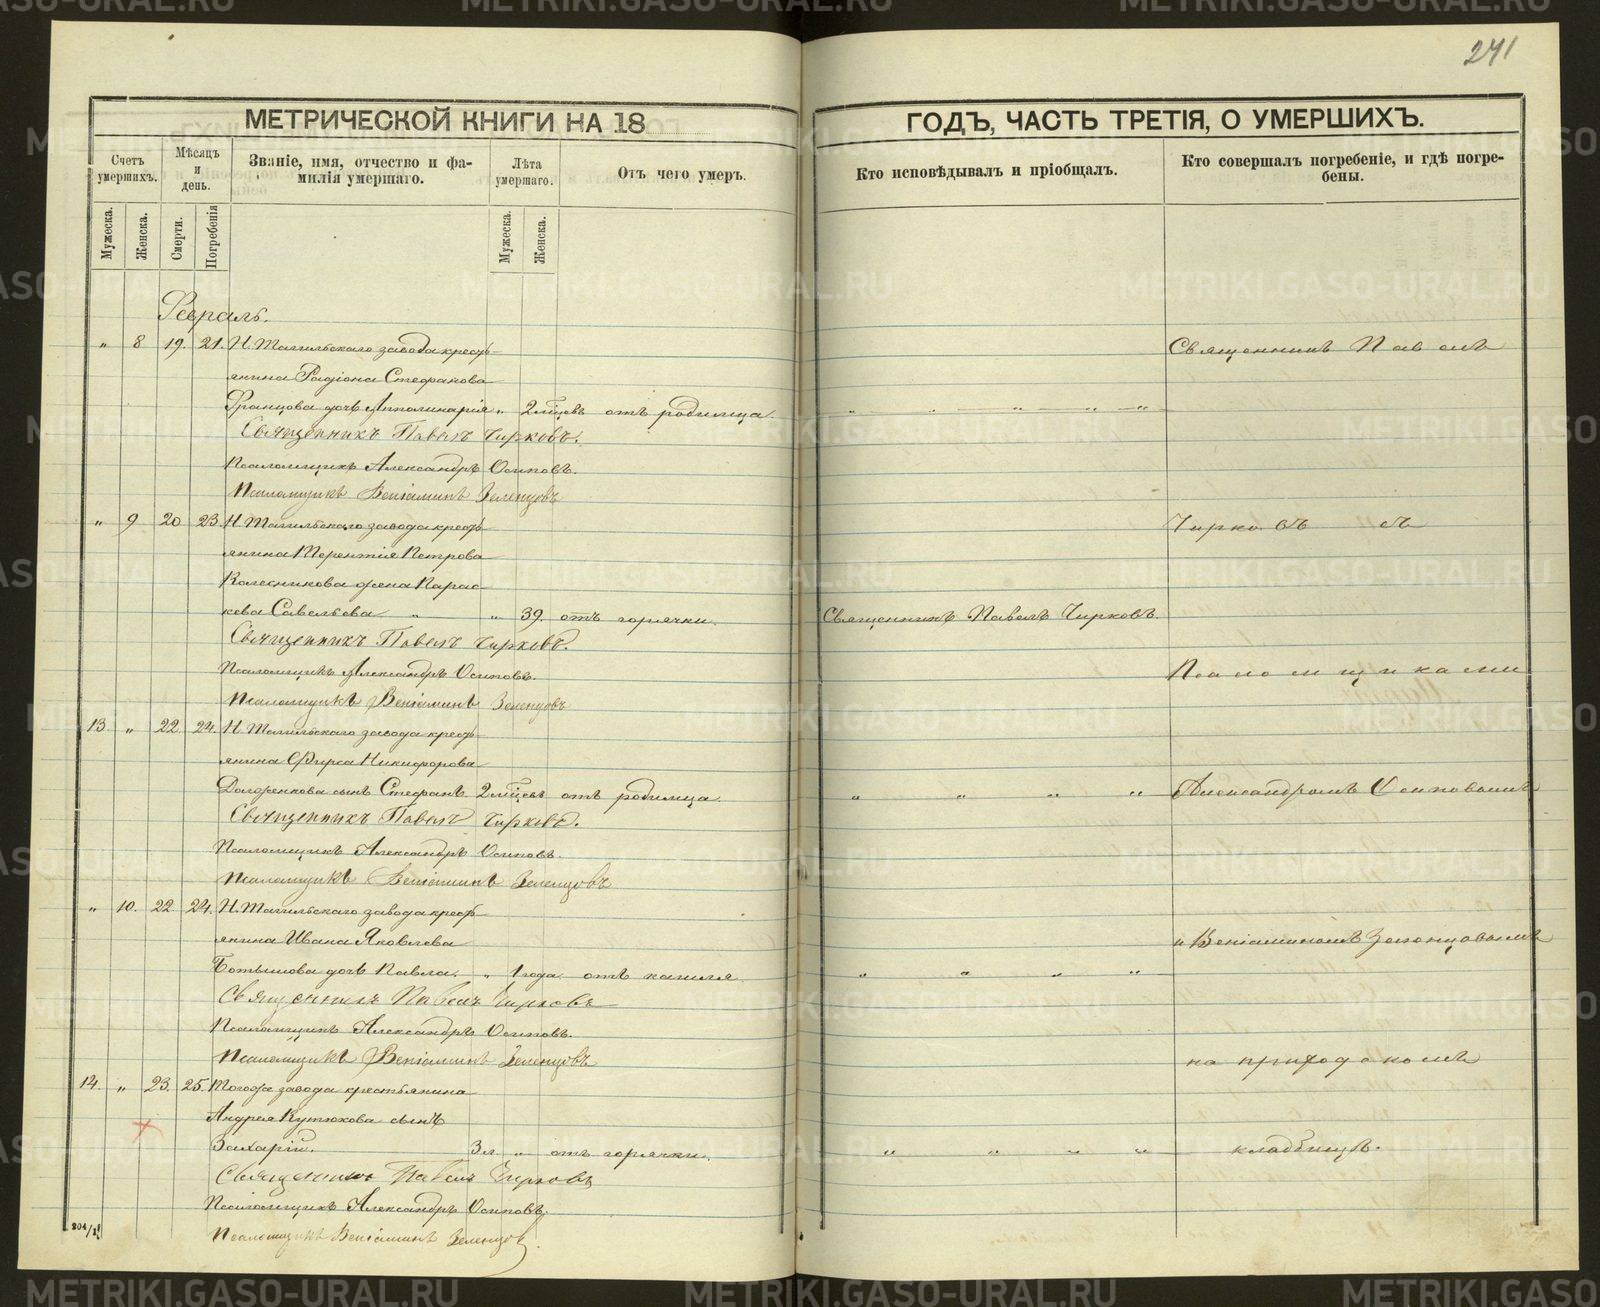 241
МЕТРИЧЕСКОЙ КНИГИ НА 18
ГОДЪ, ЧАСТЬ ТРЕТІЯ, О УМЕРШИХЪ.
Счетъ умершихъ.
Мѣсяцъ и день.
Званіе, имя, отчество и фа-
милія умершаго.
Лѣта умершаго.
Отъ чего умеръ.
Кто исповѣдывалъ и пріобщалъ.
Кто совершалъ погребеніе, и гдѣ погре-
бены.
Мужеска.
Женска.
Смерти.
Погребенія
Мужеска.
Женска.
Февраль.
„ 8 19. 21. Н. Тагильскаго завода кресть-
янина Радіона Стефанова
Францова дочь Апполинарія „ 2 мѣсцевъ отъ родимца.
Священникъ Павелъ Чирковъ.
Псаломщикъ Александръ Осиповъ.
Псаломщикъ Веніаминъ Зеленцовъ
„ 9 20 23. Н. Тагильскаго завода кресть-
янина Терентія Петрова
Колесникова жена Парас-
кева Савельева „ „ 39. отъ горячки. Священникъ Павелъ Чирковъ.
Священникъ Павелъ Чирковъ.
Псаломщикъ Александръ Осиповъ.
Псаломщикъ Веніаминъ Зеленцовъ
13. „ 22. 24. Н. Тагильскаго завода кресть-
янина Фирса Никифорова
сынъ Стефанъ 2 мѣсцевъ отъ родимца.
Священникъ Павелъ Чирковъ.
Псаломщикъ Александръ Осиповъ.
Псаломщикъ Веніаминъ Зеленцовъ
„ 10. 22. 24. Н. Тагильскаго завода кресть-
янина Ивана Яковлева
дочь Павла. „ 1 года. отъ кашля
Священникъ Павелъ Чирковъ
Псаломщикъ Александръ Осиповъ.
Псаломщикъ Веніаминъ Зеленцовъ
14. „ 23. 25. Тогоже завода крестьянина
Андрея Кутюкова сынъ
Захарій. 3 л „ отъ горячки.
Священникъ Павелъ Чирковъ
Псаломщикъ Александръ Осиповъ.
Псаломщикъ Веніаминъ Зеленцов.
204/1
Священникъ Павелъ
Чирковъ съ
Псаломщиками
Александромъ Осиповымъ
и Веніаминомъ Зеленцовымъ
на приходскомъ
кладбищѣ.
METRIKI.GASO-URAL.RU